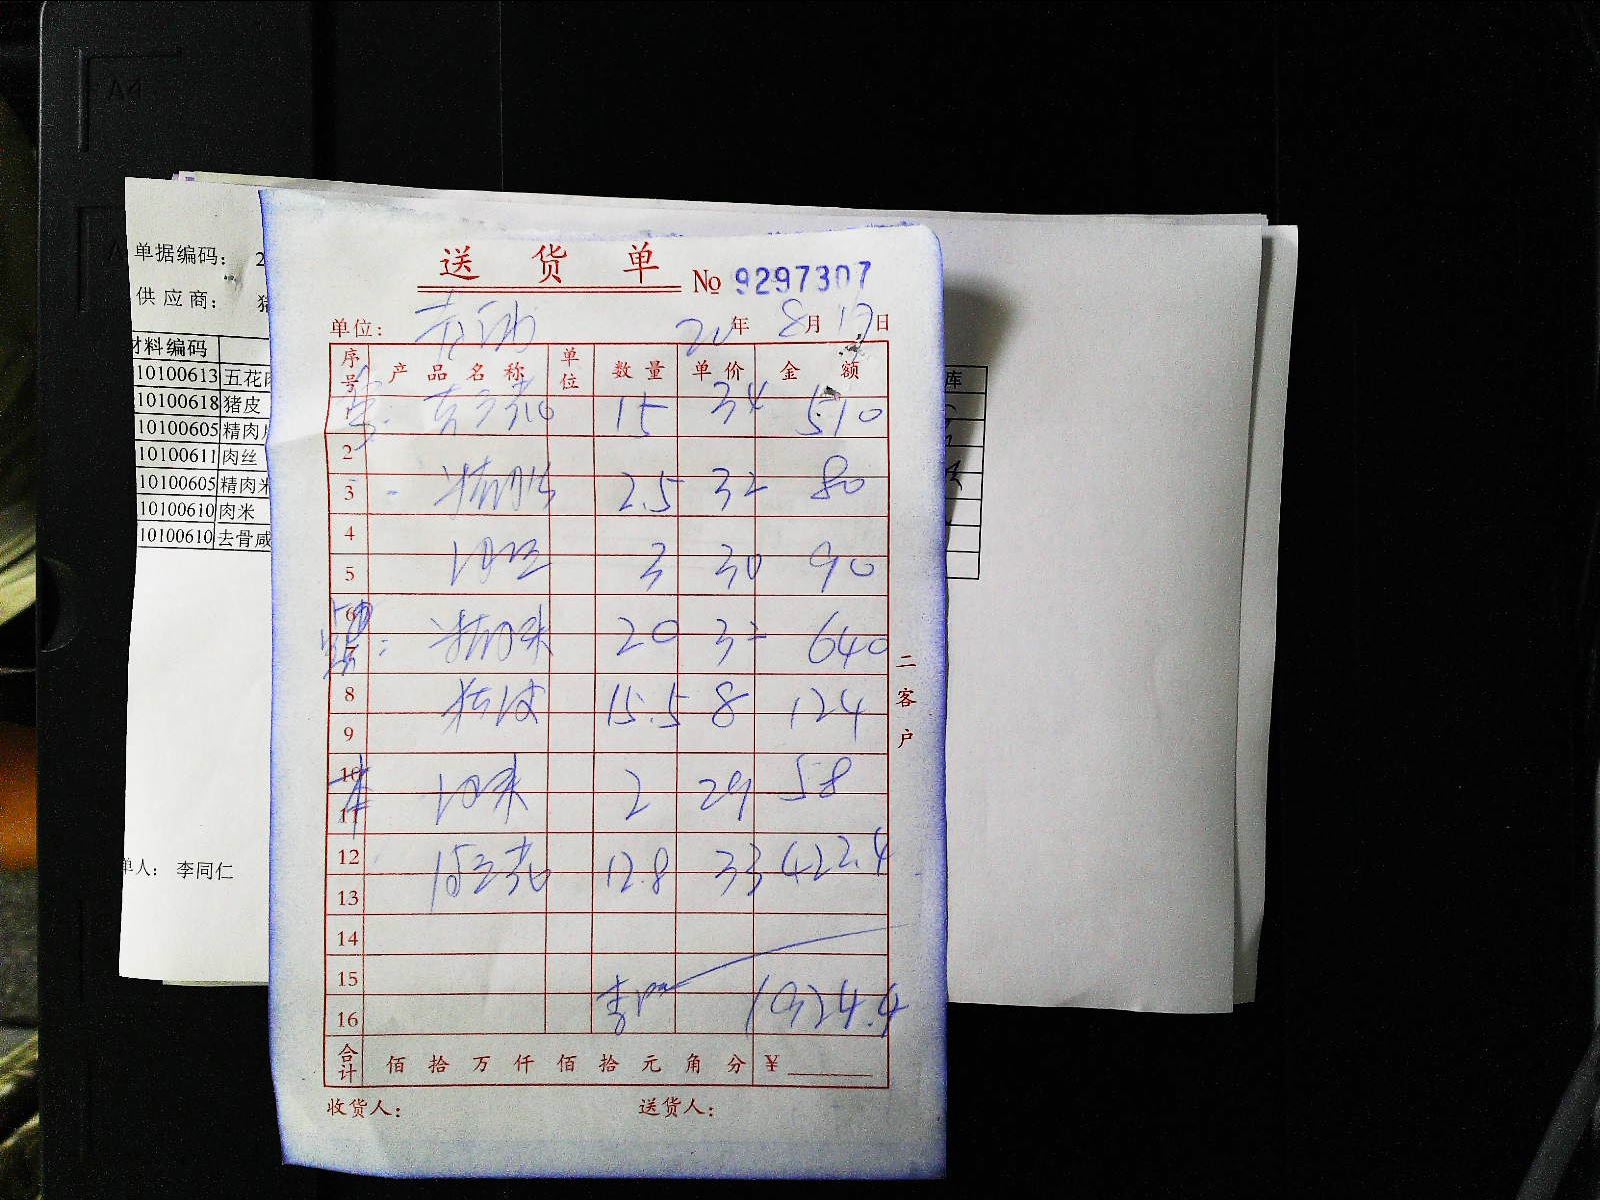 送货单
№ 9297307
单位： 20年 8月 19日
序号 产品名称 单位 数量 单价 金额
1 去骨 15 34 510
2
3 精肉片 2.5 32 80
4
5 肉丝 3 30 90
6
7 精肉米 20 32 640
8 猪皮 15.5 8 124
9
10
11 肉米 2 29 58
12 12.8 33 422.4
13
14
15
16 1924.4
合计 佰 拾 万 仟 佰 拾 元 角 分 ¥
收货人： 送货人：
二客户
单据编码： 2
供应商： 猪
材料编码
10100613 五花肉
10100618 猪皮
10100605 精肉片
10100611 肉丝
10100605 精肉米
10100610 肉米
10100610 去骨咸
库
单人： 李同仁
A4